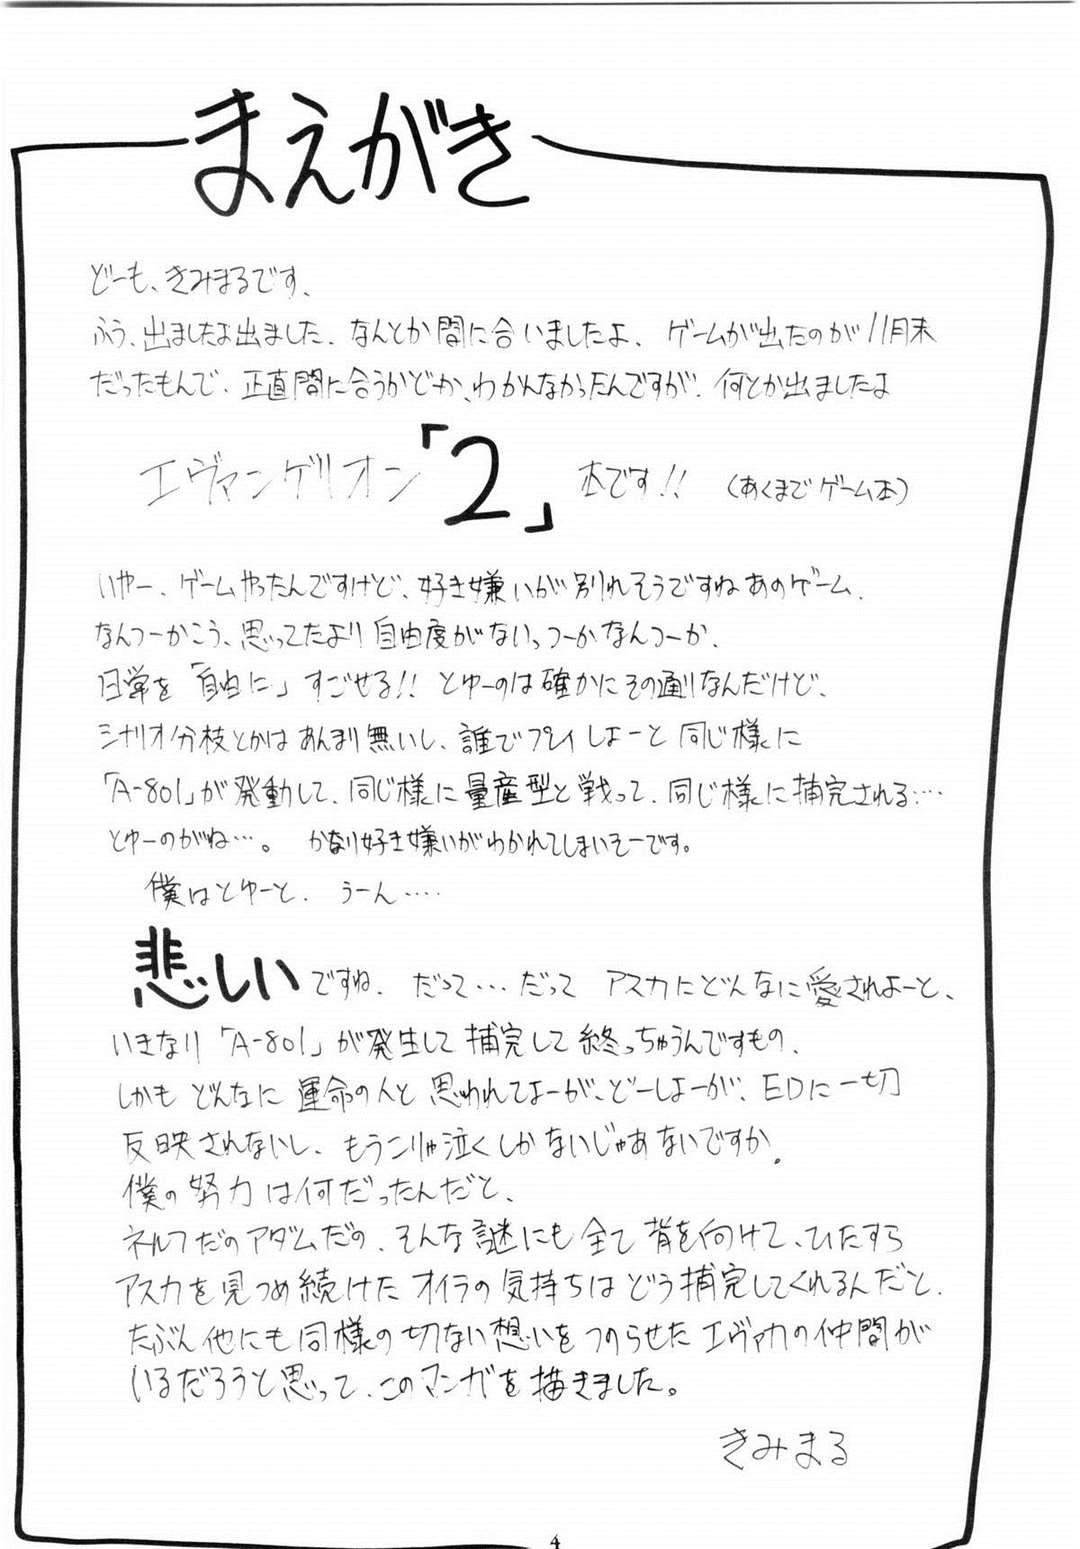 まえがき
どーも、きみまるです、
ふう、出ましたよ出ました、なんとか間に合いましたよ、ゲームが出たのが11月末
だったもんで、正直間に合うかどか、わかんなかったんですが、何とか出ましたよ
エヴァンゲリオン「2」本です!!（あくまでゲーム本）
いやー、ゲームやったんですけど、好き嫌いが別れそうですねあのゲーム、
なんつーかこう、思ってたより自由度がないっつーかなんつーか、
日常を「自由に」すごせる!!とゆーのは確かにその通りなんだけど、
シナリオ分枝とかはあんまり無いし、誰でプレイしよーと同じ様に
「A-801」が発動して、同じ様に量産型と戦って、同じ様に捕完される…
とゆーのがね…。かなり好き嫌いがわかれてしまいそーです。
僕はとゆーと、うーん‥‥
悲しいですね、だって…だってアスカにどんなに愛されよーと、
いきなり「A-801」が発生して捕完して終っちゃうんですもの、
しかもどんなに運命の人と思われてよーが、どーしよーが、EDに一切
反映されないし、もうこりゃ泣くしかないじゃあないですか、
僕の努力は何だったんだと、
ネルフだのアダムだの、そんな謎にも全て背を向けて、ひたすら
アスカを見つめ続けたオイラの気持ちはどう捕完してくれるんだと、
たぶん他にも同様の切ない想いをつのらせたエヴァカの仲間が
いるだろうと思って、このマンガを描きました。
きみまる
4